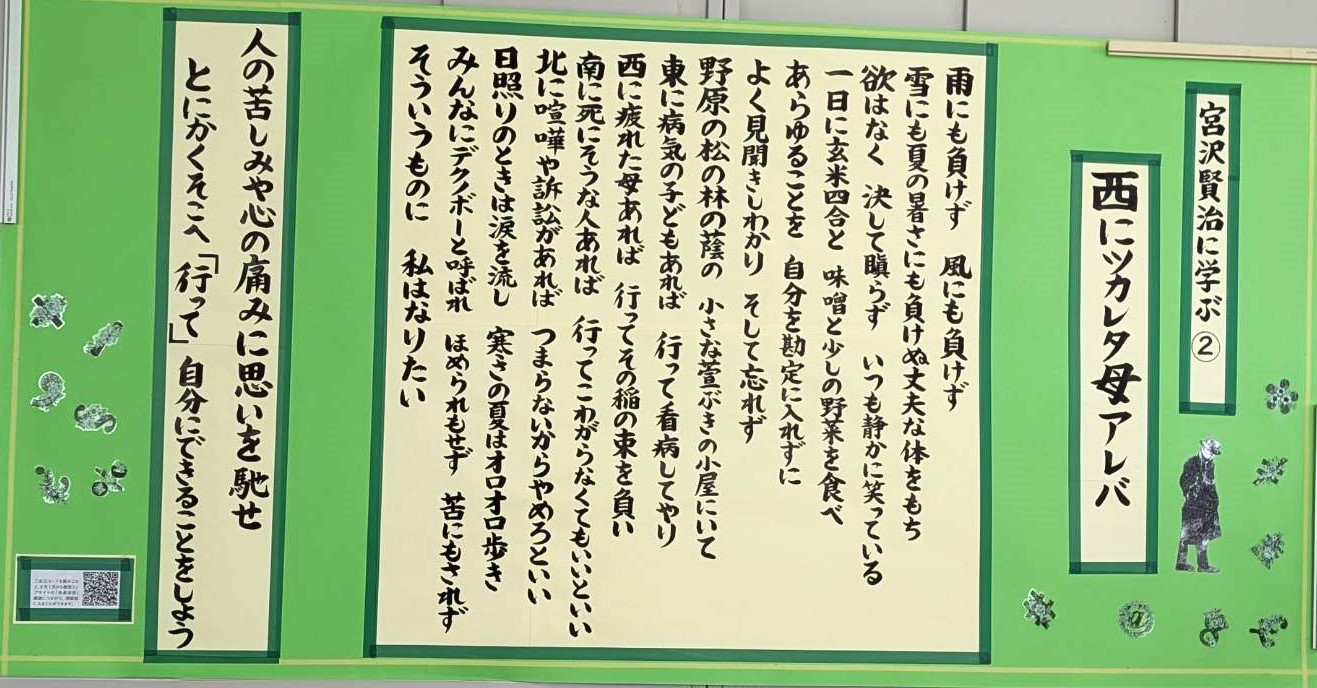 宮沢賢治に学ぶ②
西にツカレタ母アレバ
雨にも負けず　風にも負けず
雪にも夏の暑さにも負けぬ丈夫な体をもち
欲はなく　決して瞋らず　いつも静かに笑っている
一日に玄米四合と　味噌と少しの野菜を食べ
あらゆることを　自分を勘定に入れずに
よく見聞きしわかり　そして忘れず
野原の松の林の蔭の　小さな萱ぶきの小屋にいて
東に病気の子どもあれば　行って看病してやり
西に疲れた母あれば　行ってその稲の束を負い
南に死にそうな人あれば　行ってこわがらなくてもいいといい
北に喧嘩や訴訟があれば　つまらないからやめろといい
日照りのときは涙を流し　寒さの夏はオロオロ歩き
みんなにデクノボーと呼ばれ　ほめられもせず　苦にもされず
そういうものに　私はなりたい
人の苦しみや心の痛みに思いを馳せ
とにかくそこへ「行って」　自分にできることをしよう